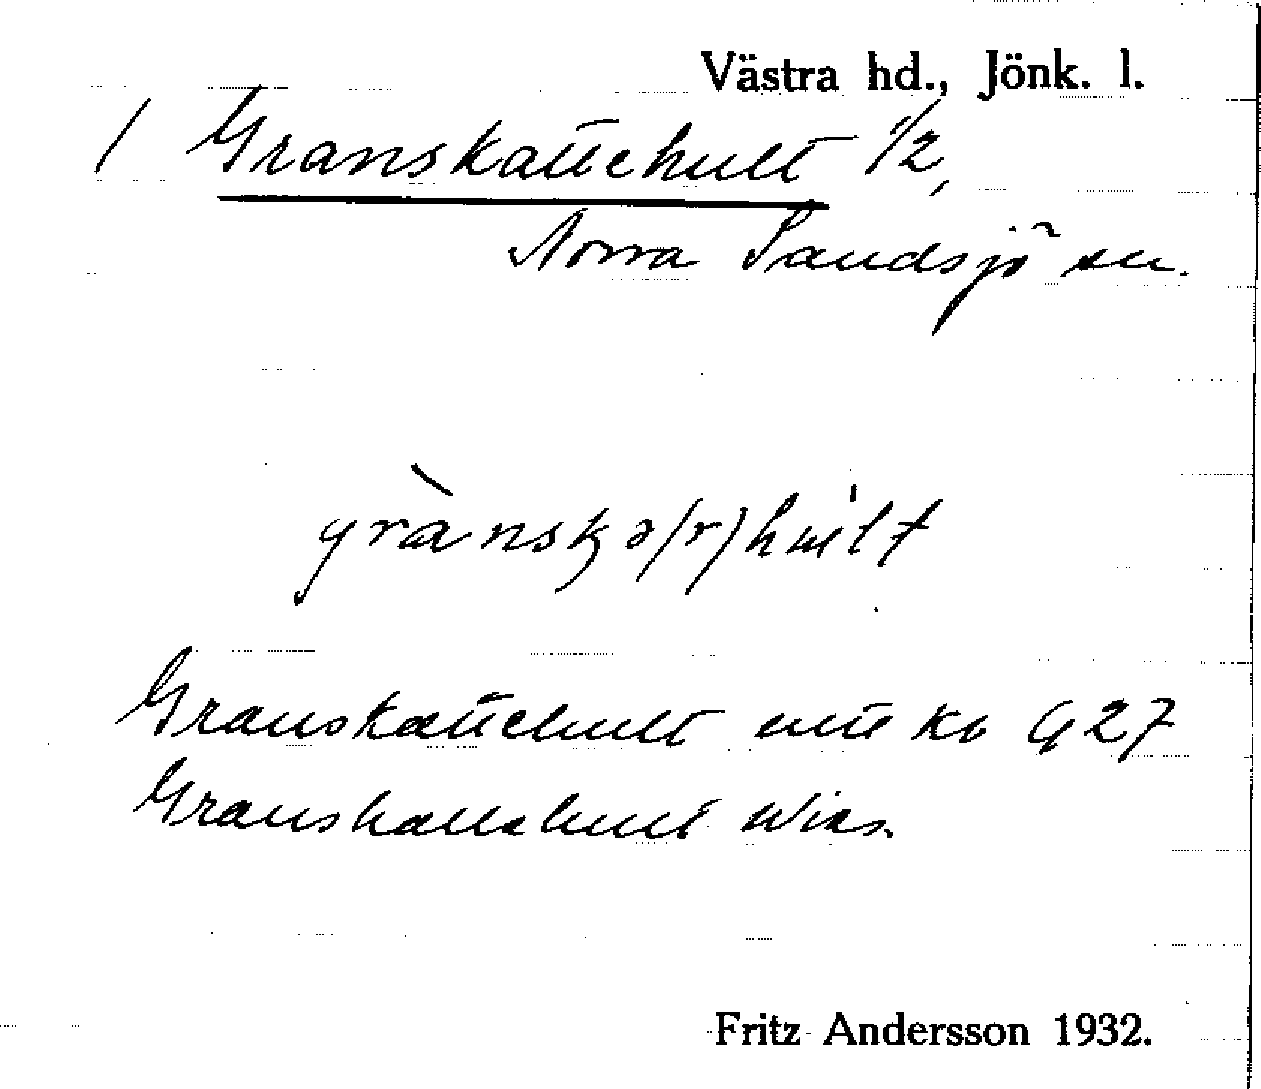 Västra hd., Jönk. l.
/ Granskattehult 1/2,
Norra Sandsjö sn.
grànskə(r)hult
Granskattehult enl kb G 27
Granskattehult Wies.
Fritz Andersson 1932.